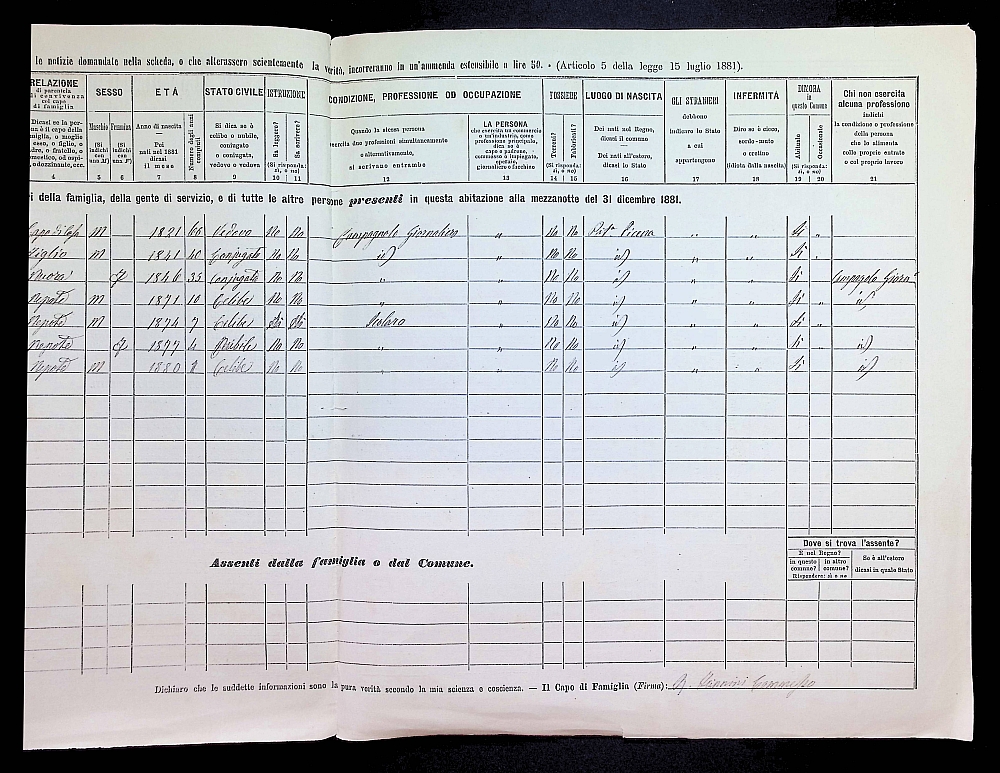 le notizie domandate nella scheda, o che alterassero scientemente la verità, incorreranno in un'ammenda estensibile a lire 50. - (Articolo 5 della legge 15 luglio 1881).
RELAZIONE
di parentela
di convivenza
col capo
di famiglia
SESSO
ETÀ
STATO CIVILE
ISTRUZIONE
CONDIZIONE, PROFESSIONE OD OCCUPAZIONE
POSSIEDE
LUOGO DI NASCITA
GLI STRANIERI
debbono
indicare lo Stato
a cui
appartengono
INFERMITÀ
DIMORA
in
questo Comune
Chi non esercita
alcuna professione
indichi
la condizione o professione
della persona
che lo alimenta
colle proprie entrate
o col proprio lavoro
Maschio
(Si
indichi
con
una M)
Femmina
(Si
indichi
con
una F)
Anno di nascita
Pei
nati nel 1881
dicasi
il mese
Numero degli anni
compiuti
Si dica se è
celibe o nubile,
coniugato
o coniugata,
vedovo o vedova
Sa leggere?
Sa scrivere?
(Si risponda:
sì, o no)
Quando la stessa persona
esercita due professioni simultaneamente
o alternativamente,
si scrivano entrambe
LA PERSONA
che esercita un commercio
o un'industria, come
professione principale,
dica se è
capo o padrone,
commesso o impiegato,
operaio,
giornaliero o facchino
Terreni?
Fabbricati?
(Si risponda:
sì, o no)
Dei nati nel Regno,
dicasi il comune
Dei nati all'estero,
dicasi lo Stato
Dire se è cieco,
sordo-muto
o cretino
(idiota dalla nascita)
Abituale
Occasionale
(Si risponda:
sì, o no)
4 5 6 7 8 9 10 11 12 13 14 15 16 17 18 19 20 21
ri della famiglia, della gente di servizio, e di tutte le altre persone presenti in questa abitazione alla mezzanotte del 31 dicembre 1881.
M 1821 Vedovo No No Campagnolo Giornaliero " No No " " Si "
Figlio M 1841 40 Conjugato No No id) " No No id) " " Si "
Nuora F 1846 35 Conjugata No No " " No No id) " " Si Campagnolo
Nepote M 1871 10 Celibe No No " " No No id) " " Si " id)
Nepote M 1874 7 Celibe Si Si Scolaro " No No id) " " Si "
Nepote F 1877 4 Nubile No No " " No No id) " " Si id)
Nepote M 1880 Celibe No No " " No No id) " " Si id)
Assenti dalla famiglia o dal Comune.
Dove si trova l'assente?
È nel Regno?
in questo
comune?
in altro
comune?
Risponderà: sì o no
Se è all'estero
dicasi in quale Stato
Dichiaro che le suddette informazioni sono la pura verità secondo la mia scienza e coscienza. — Il Capo di Famiglia (Firma):